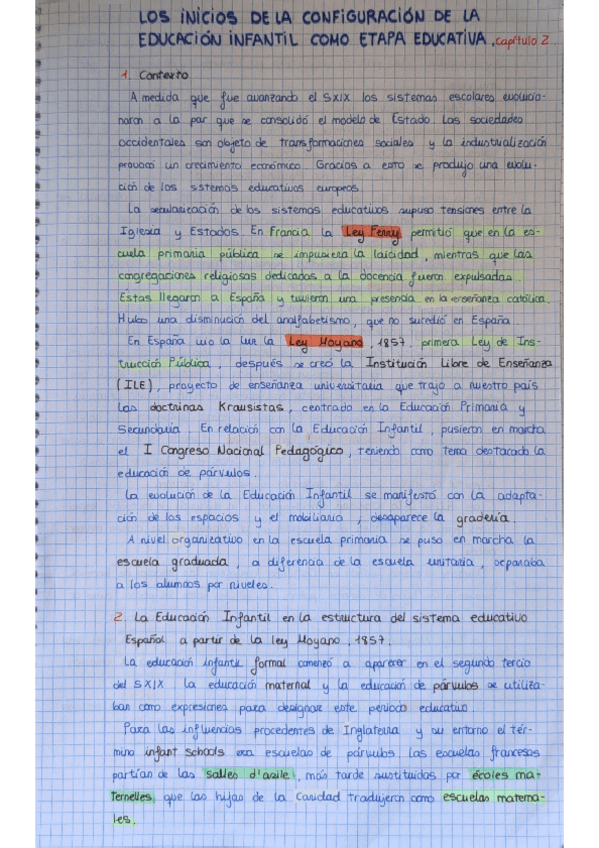 LOS INICIOS DE LA CONFIGURACIÓN DE LA
EDUCACIÓN INFANTIL COMO ETAPA EDUCATIVA. capítulo 2
1. Contexto
A medida que fue avanzando el SXIX los sistemas escolares evolucio-
naron a la par que se consolidó el modelo de Estado. Las sociedades
occidentales son objeto de transformaciones sociales y la industrialización
provocó un crecimiento económico. Gracias a esto se produjo una evolu-
ción de los sistemas educativos europeos.
La secularización de los sistemas educativos supuso tensiones entre la
Iglesia y Estados. En Francia la Ley Ferry permitió que en la es-
cuela primaria pública se impusiera la laicidad, mientras que las
congregaciones religiosas dedicadas a la docencia fueron expulsadas.
Estas llegaron a España y tuvieron una presencia en la enseñanza católica.
Hubo una disminución del analfabetismo, que no sucedió en España.
En España vio la luz la Ley Moyano, 1857, primera Ley de Ins-
trucción Pública, después se creó la Institución Libre de Enseñanza
(ILE), proyecto de enseñanza universitaria que trajo a nuestro país
las doctrinas Krausistas, centrado en la Educación Primaria y
Secundaria. En relación con la Educación Infantil, pusieron en marcha
el I Congreso Nacional Pedagógico, teniendo como tema destacado la
educación de párvulos.
La evolución de la Educación Infantil se manifestó con la adapta-
ción de los espacios y el mobiliario, desaparece la gradería.
A nivel organizativo en la escuela primaria se puso en marcha la
escuela graduada, a diferencia de la escuela unitaria, separaba
a los alumnos por niveles.
2. La Educación Infantil en la estructura del sistema educativo
Español a partir de la ley Moyano, 1857.
La educación infantil formal comenzó a aparecer en el segundo tercio
del SXIX. La educación maternal y la educación de párvulos se utiliza-
ban como expresiones para designar este periodo educativo.
Para las influencias procedentes de Inglaterra y su entorno el tér-
mino infant schools era escuelas de párvulos. Las escuelas francesas
partían de las salles d'asile, más tarde sustituidas por écoles ma-
ternelles, que las hijas de la Caridad tradujeron como escuelas materna-
les.